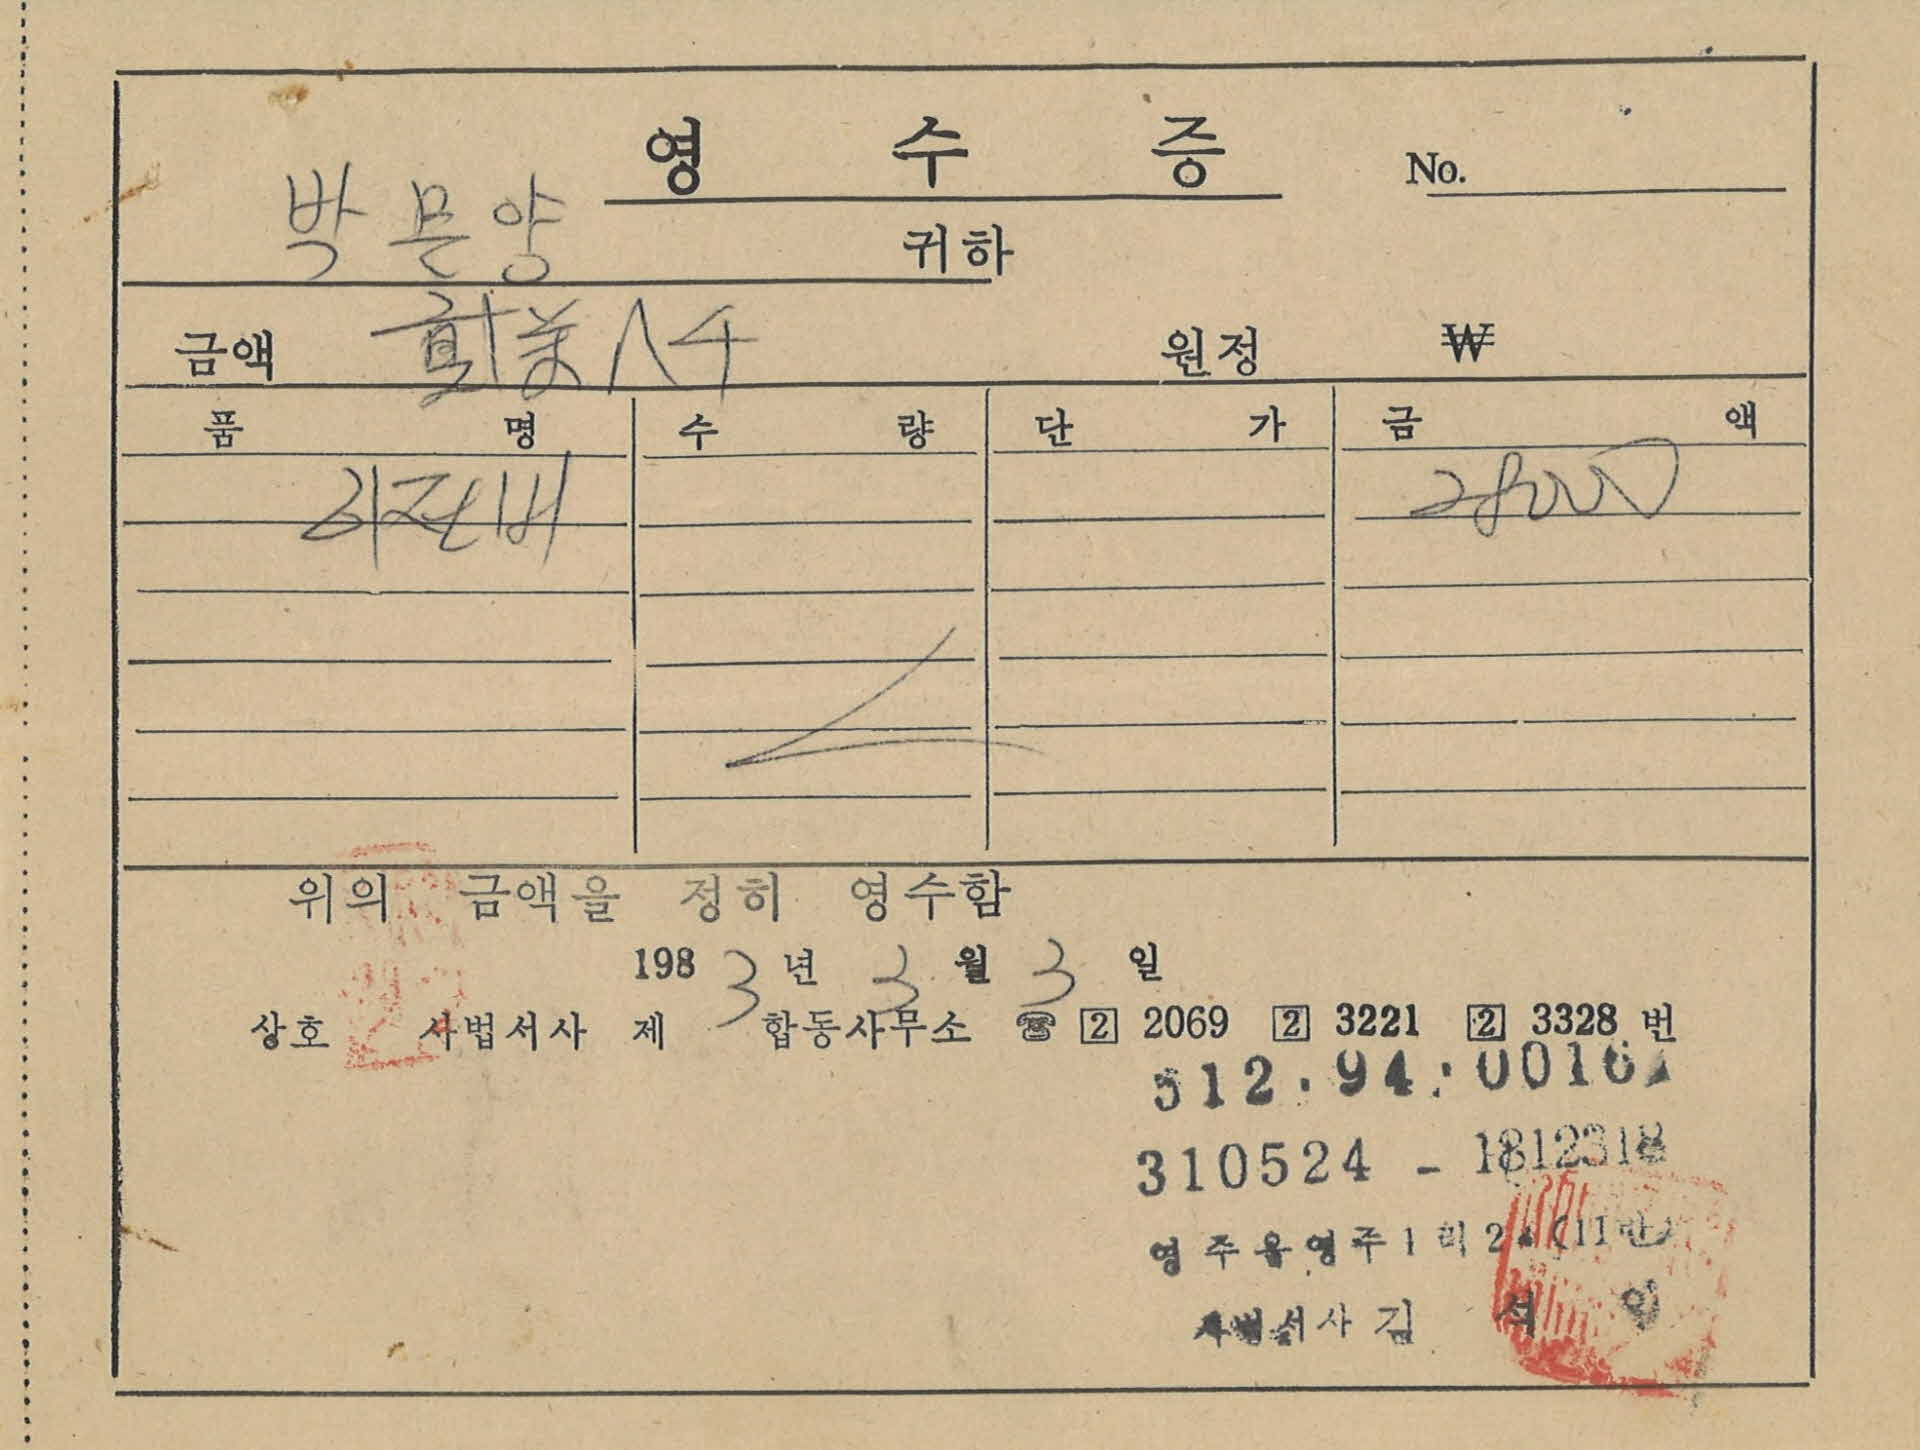 영 수 증 No.
박문양 귀하
금액 원정 ₩
품 명 수 량 단 가 금 액
28000
위의 금액을 정히 영수함
1983년 3월 3일
상호 사법서사 제 합동사무소 ☎ 2 2069 2 3221 2 3328 번
512·94·0016
310524 -
영주읍영주1리2
사법서사 김 석